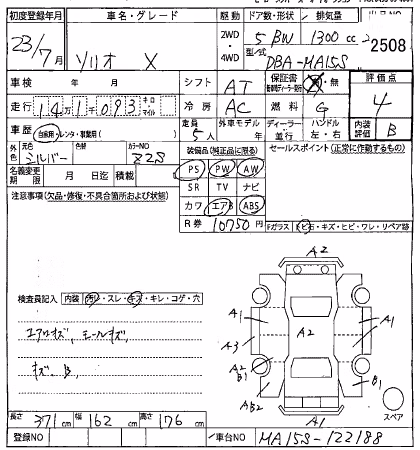 初度登録年月 車名・グレード 駆動 ドア数・形状 排気量
23/7月 ソリオ X 2WD・4WD 5 BW 1300 cc
型/式 DBA-MA15S
2508
車検 年 月 シフト AT 保証書 有・無 評価点
走行 14万1千093 キロ・マイル 冷房 AC 燃料 G 4
車歴 自家用・レンタ・
定員 5人 外車モデル年 ディーラー・並行 ハンドル 左・右 内装評価 B
外色 元色 シルバー 色替 カラーNO Z2S
装備品(純正品に限る) セールスポイント(正常に作動するもの)
名義変更期限 月 日迄 積載
PS PW AW
SR TV ナビ
カワ エアB ABS
R券 10750円
注意事項(欠品・修復・不具合箇所および状態)
Fガラス トビ石・キズ・ヒビ・ワレ・リペア跡
検査員記入 内装 汚レ・スレ・キズ・キレ・コゲ・穴
キズ、B
A2
A1 A2 A1
A3
A2 B1
AB2 B1
A1
スペア
長さ 371cm 幅 162cm 高さ 176cm
登録NO 車台NO MA15S-122188